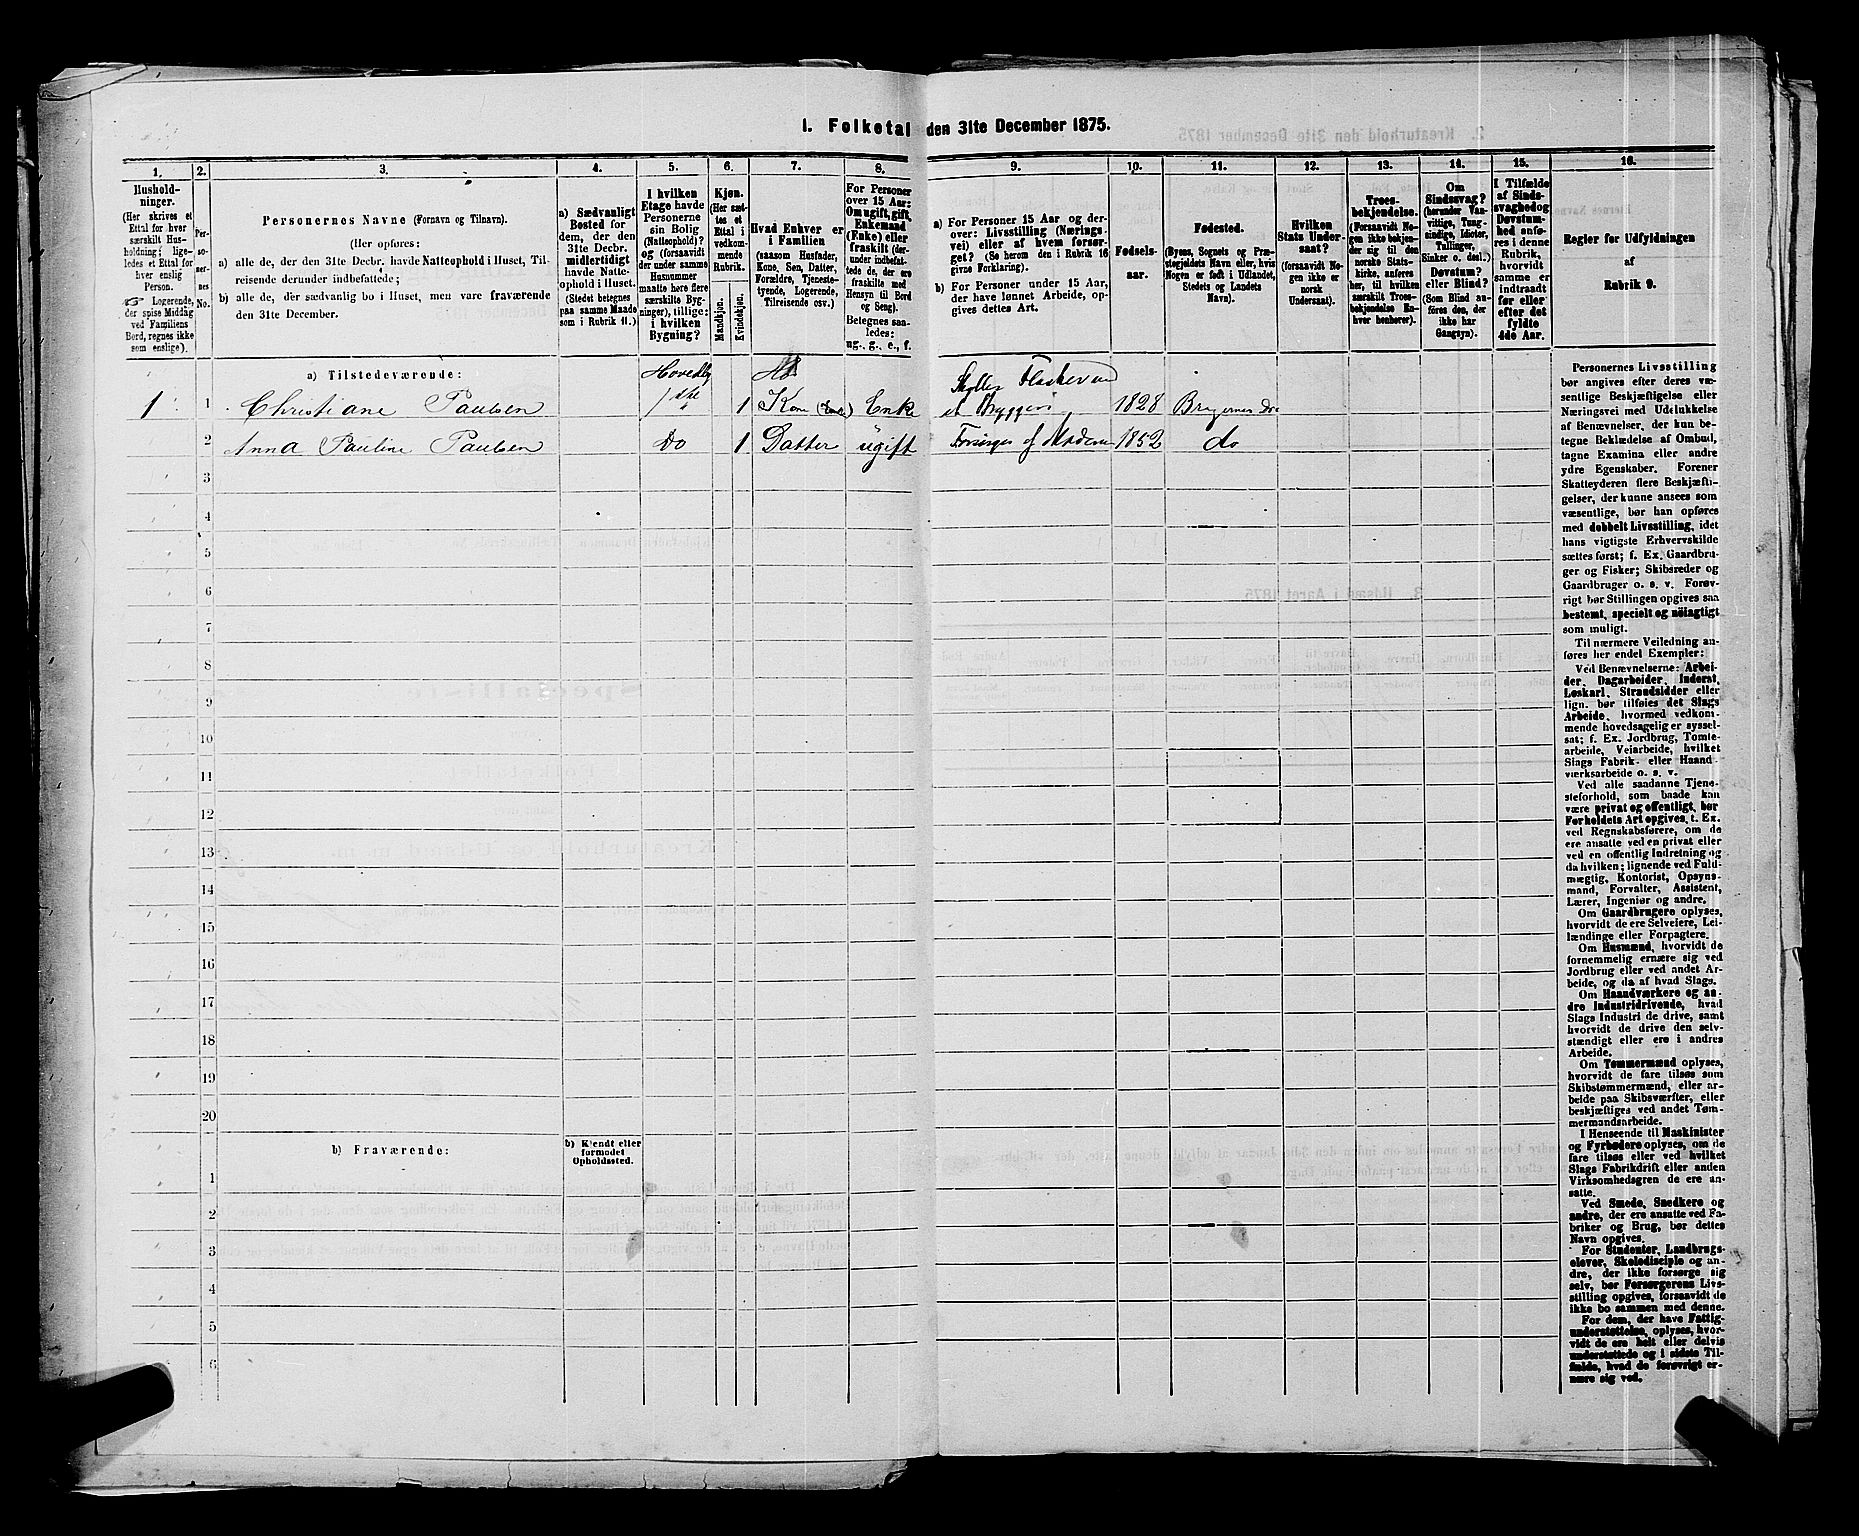 1. Folketal den 31te December 1875.
1.
Hushold-
ninger.
(Her skrives et
Ettal for hver
særskilt Hus-
holdning; lige-
ledes et Ettal for
hver enslig
Person.
Logerende,
der spise Middag
ved Familiens
Bord, regnes ikke
som enslige).
2.
Per-
so-
ner-
nes
No.
3.
Personernes Navne (Fornavn og Tilnavn).
(Her opføres:
a) alle de, der den 31te Decbr. havde Natteophold i Huset, Til-
reisende derunder indbefattede;
b) alle de, der sædvanlig bo i Huset, men vare fraværende
den 31te December.
4.
a) Sædvanligt
Bosted for
dem, der den
31te Decbr.
midlertidigt
havde Natte-
ophold i Huset.
(Stedet betegnes
paa samme Maade
som i Rubrik 11.)
5.
I hvilken
Etage havde
Personerne
sin Bolig
(Natteophold)?
og (forsaavidt
der under samme
Husnummer
maatte høre flere
særskilte Byg-
ninger), tillige:
i hvilken
Bygning?
6.
Kjøn.
(Her sæt-
tes et
Ettal i
vedkom-
mende
Rubrik.
Mandkjøn.
Kvindekjøn.
7.
Hvad Enhver er
i Familien
(saasom Husfader,
Kone, Søn, Datter,
Forældre, Tjeneste-
tyende, Logerende,
Tilreisende osv.)
8.
For Personer
over 15 Aar:
Om ugift, gift,
Enkemand
(Enke) eller
fraskilt (der-
under indbefat-
tede de, der ere
fraskilte med
Hensyn til Bord
og Seng).
Betegnes saa-
ledes:
ug., g., e., f.
9.
a) For Personer 15 Aar og der-
over: Livsstilling (Nærings-
vei) eller af hvem forsør-
get? (Se herom den i Rubrik 16
givne Forklaring).
b) For Personer under 15 Aar,
der have lønnet Arbeide, op-
gives dettes Art.
10.
Fødsels-
aar.
11.
Fødested.
(Byens, Sognets og Præ-
stegjeldets Navn eller, hvis
Nogen er født i Udlandet,
Stedets og Landets
Navn).
12.
Hvilken
Stats Under-
saat?
(forsaavidt No-
gen ikke er
norsk
Undersaat).
13.
Troes-
bekjendelse.
(Forsaavidt No-
gen ikke bekjen-
der sig til den
norske Stats-
kirke, anføres
her, til hvilken
særskilt Troes-
bekjendelse En-
hver henhører).
14.
Om
Sindssvag?
(herunder Van-
vittige, Tung-
sindige, Idioter,
Tullinger,
Sinker o. desl.).
Døvstum?
eller Blind?
(Som Blind an-
føres den, der
ikke har
Gangsyn).
15.
I Tilfælde
af Sinds-
svaghed og
Døvstum-
hed anfø-
res i denne
Rubrik,
hvorvidt
samme er
indtraadt
før eller
efter det
fyldte
4de Aar.
16.
Regler for Udfyldningen
af
Rubrik 9.
a) Tilstedeværende:
Hovedby
1 1 Christiane Paulsen 1ste 1 Kone (Enke) Enke 1828 Bragernes Dr
2 Anna Pauline Paulsen Do 1 Datter ugift Forsørges af Moderen 1852 do
3
4
5
6
7
8
9
10
11
12
13
14
15
16
17
18
19
20
b) Fraværende:
b) Kjendt eller
formodet
Opholdssted.
1
2
3
4
5
6
Personernes Livsstilling
bør angives efter deres væ-
sentlige Beskjæftigelse eller
Næringsvei med Udelukkelse
af Benævnelser, der kun be-
tegne Beklædelse af Ombud,
tagne Examina eller andre
ydre Egenskaber. Forener
Skatteyderen flere Beskjæfti-
gelser, der kunne ansees som
væsentlige, bør han opføres
med dobbelt Livsstilling, idet
hans vigtigste Erhvervskilde
sættes først; f. Ex. Gaardbru-
ger og Fisker; Skibsreder og
Gaardbruger o. s. v. Forøv-
rigt bør Stillingen opgives saa
bestemt, specielt og nöiagtigt
som muligt.
Til nærmere Veiledning an-
føres her endel Exempler:
Ved Benævnelserne: Arbei-
der, Dagarbeider, Inderst,
Løskarl, Strandsidder eller
lign. bør tilføies det Slags
Arbeide, hvormed vedkom-
mende hovedsagelig er syssel-
sat; f. Ex. Jordbrug, Tomte-
arbeide, Veiarbeide, hvilket
Slags Fabrik- eller Haand-
værksarbeide o. s. v.
Ved alle saadanne Tjene-
steforhold, som baade kan
være privat og offentligt, bør
Forholdets Art opgives, t. Ex.
ved Regnskabsførere, om de
ere ansatte ved en privat eller
ved en offentlig Indretning og
da hvilken; lignende ved Fuld-
mægtig, Kontorist, Opsyns-
mand, Forvalter, Assistent,
Lærer, Ingeniør og andre.
Om Gaardbrugere oplyses,
hvorvidt de ere Selveiere, Lei-
lændinge eller Forpagtere.
Om Husmænd, hvorvidt de
fornemmelig ernære sig ved
Jordbrug eller ved andet Ar-
beide, og da af hvad Slags.
Om Haandværkere og an-
dre Industridrivende, hvad
Slags Industri de drive, samt
hvorvidt de drive den selv-
stændigt eller ere i andres
Arbeide.
Om Tømmermænd oplyses,
hvorvidt de fare tilsøs som
Skibstømmermænd, eller ar-
beide paa Skibsværfter, eller
beskjæftiges ved andet Tøm-
mermandsarbeide.
I Henseende til Maskinister
og Fyrbødere oplyses, om de
fare tilsøs eller ved hvilket
Slags Fabrikdrift eller anden
Virksomhedsgren de ere an-
satte.
Ved Smede, Snedkere og
andre, der ere ansatte ved Fa-
briker og Brug, bør dettes
Navn opgives.
For Studenter, Landbrugs-
elever, Skoledisciple og an-
dre, der ikke forsørge sig
selv, bør Forsørgerens Livs-
stilling opgives, forsaavidt de
ikke bo sammen med denne.
For dem, der have Fattig-
understøttelse, oplyses, hvor-
vidt de ere helt eller delvis
understøttede og i sidste Til-
fælde, hvad de forøvrigt er-
nære sig ved.